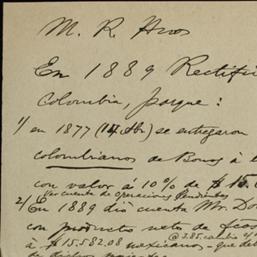 M. R. Hnos
En 1889 Rectifi
Colombia, porque:
1/ en 1877 (14 Ab.) se entregaron
colombianos de Bonos á l
con valor á 10% de $15.0
(ver cuenta de operaciones
2/ En 1889 dió cuenta Mr. Do
con producto neto de
@ 3.85
á $15582.08 mexicanos - que de